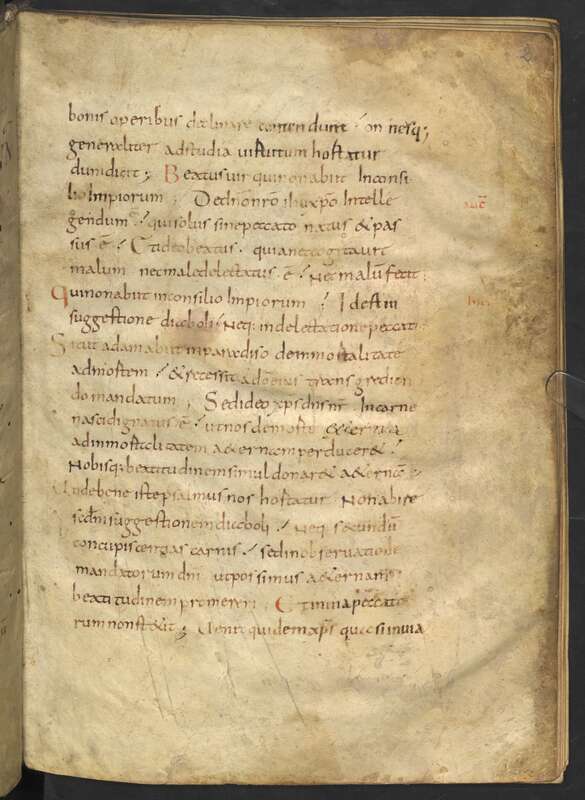 bonis operibus declinare contendunt
generaliter ad studia uirtutum hortatur
dum dicit; Beatus uir qui non abiit In consi
lio Impiorum; De dno nro ihu xpo Intelle
gendum ÷ qui solus sine peccato natus & pas
sus ē; Et ideo beatus. quia nec cogitauit
malum nec male delectatus ē; Nec malū fecit;
Qui non abiit in consilio Impiorum; Id est in
suggestione diaboli; Neq; in delectatione peccati
Sicut adam abiit in paradiso de inmortalitate
ad mortem; & recessit a dō eius transgredien
do mandatum; Sed ideo xps dns nr̄ In carne
nasci dignatus ē; ut nos de morte
ad inmortalitatem aeternam perducer&;
Nobisq; beatitudinem simul donar& aeternā;
Unde bene iste psalmus nos hortatur Non abire
scdm suggestionem diaboli; Neq; secundū
concupiscentias carnis; sed in obseruatione
mandatorum dni ut possimus aeternam
beatitudinem promereri; Et in uia peccato
rum non stetit; Uenit quidem xps quasi in uia